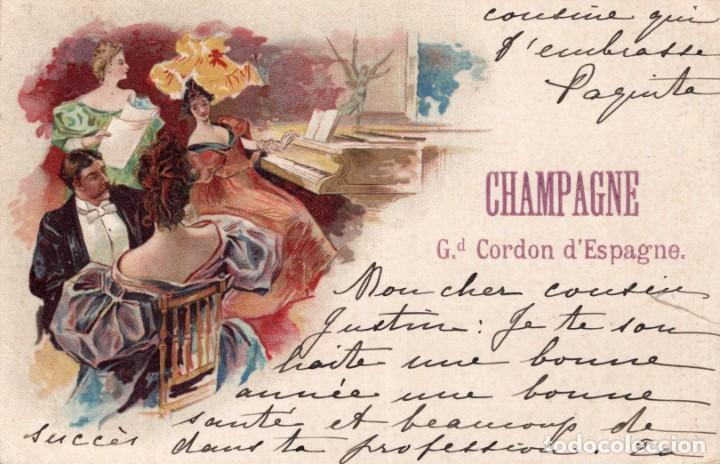 cousine qui
t'embrasse
Paquita
CHAMPAGNE
G.d Cordon d'Espagne.
Mon cher cousin
Justin: Je te sou
haite une bonne
année une bonne
santé et beaucoup de
succès dans ta profession.
todocoleccion.net